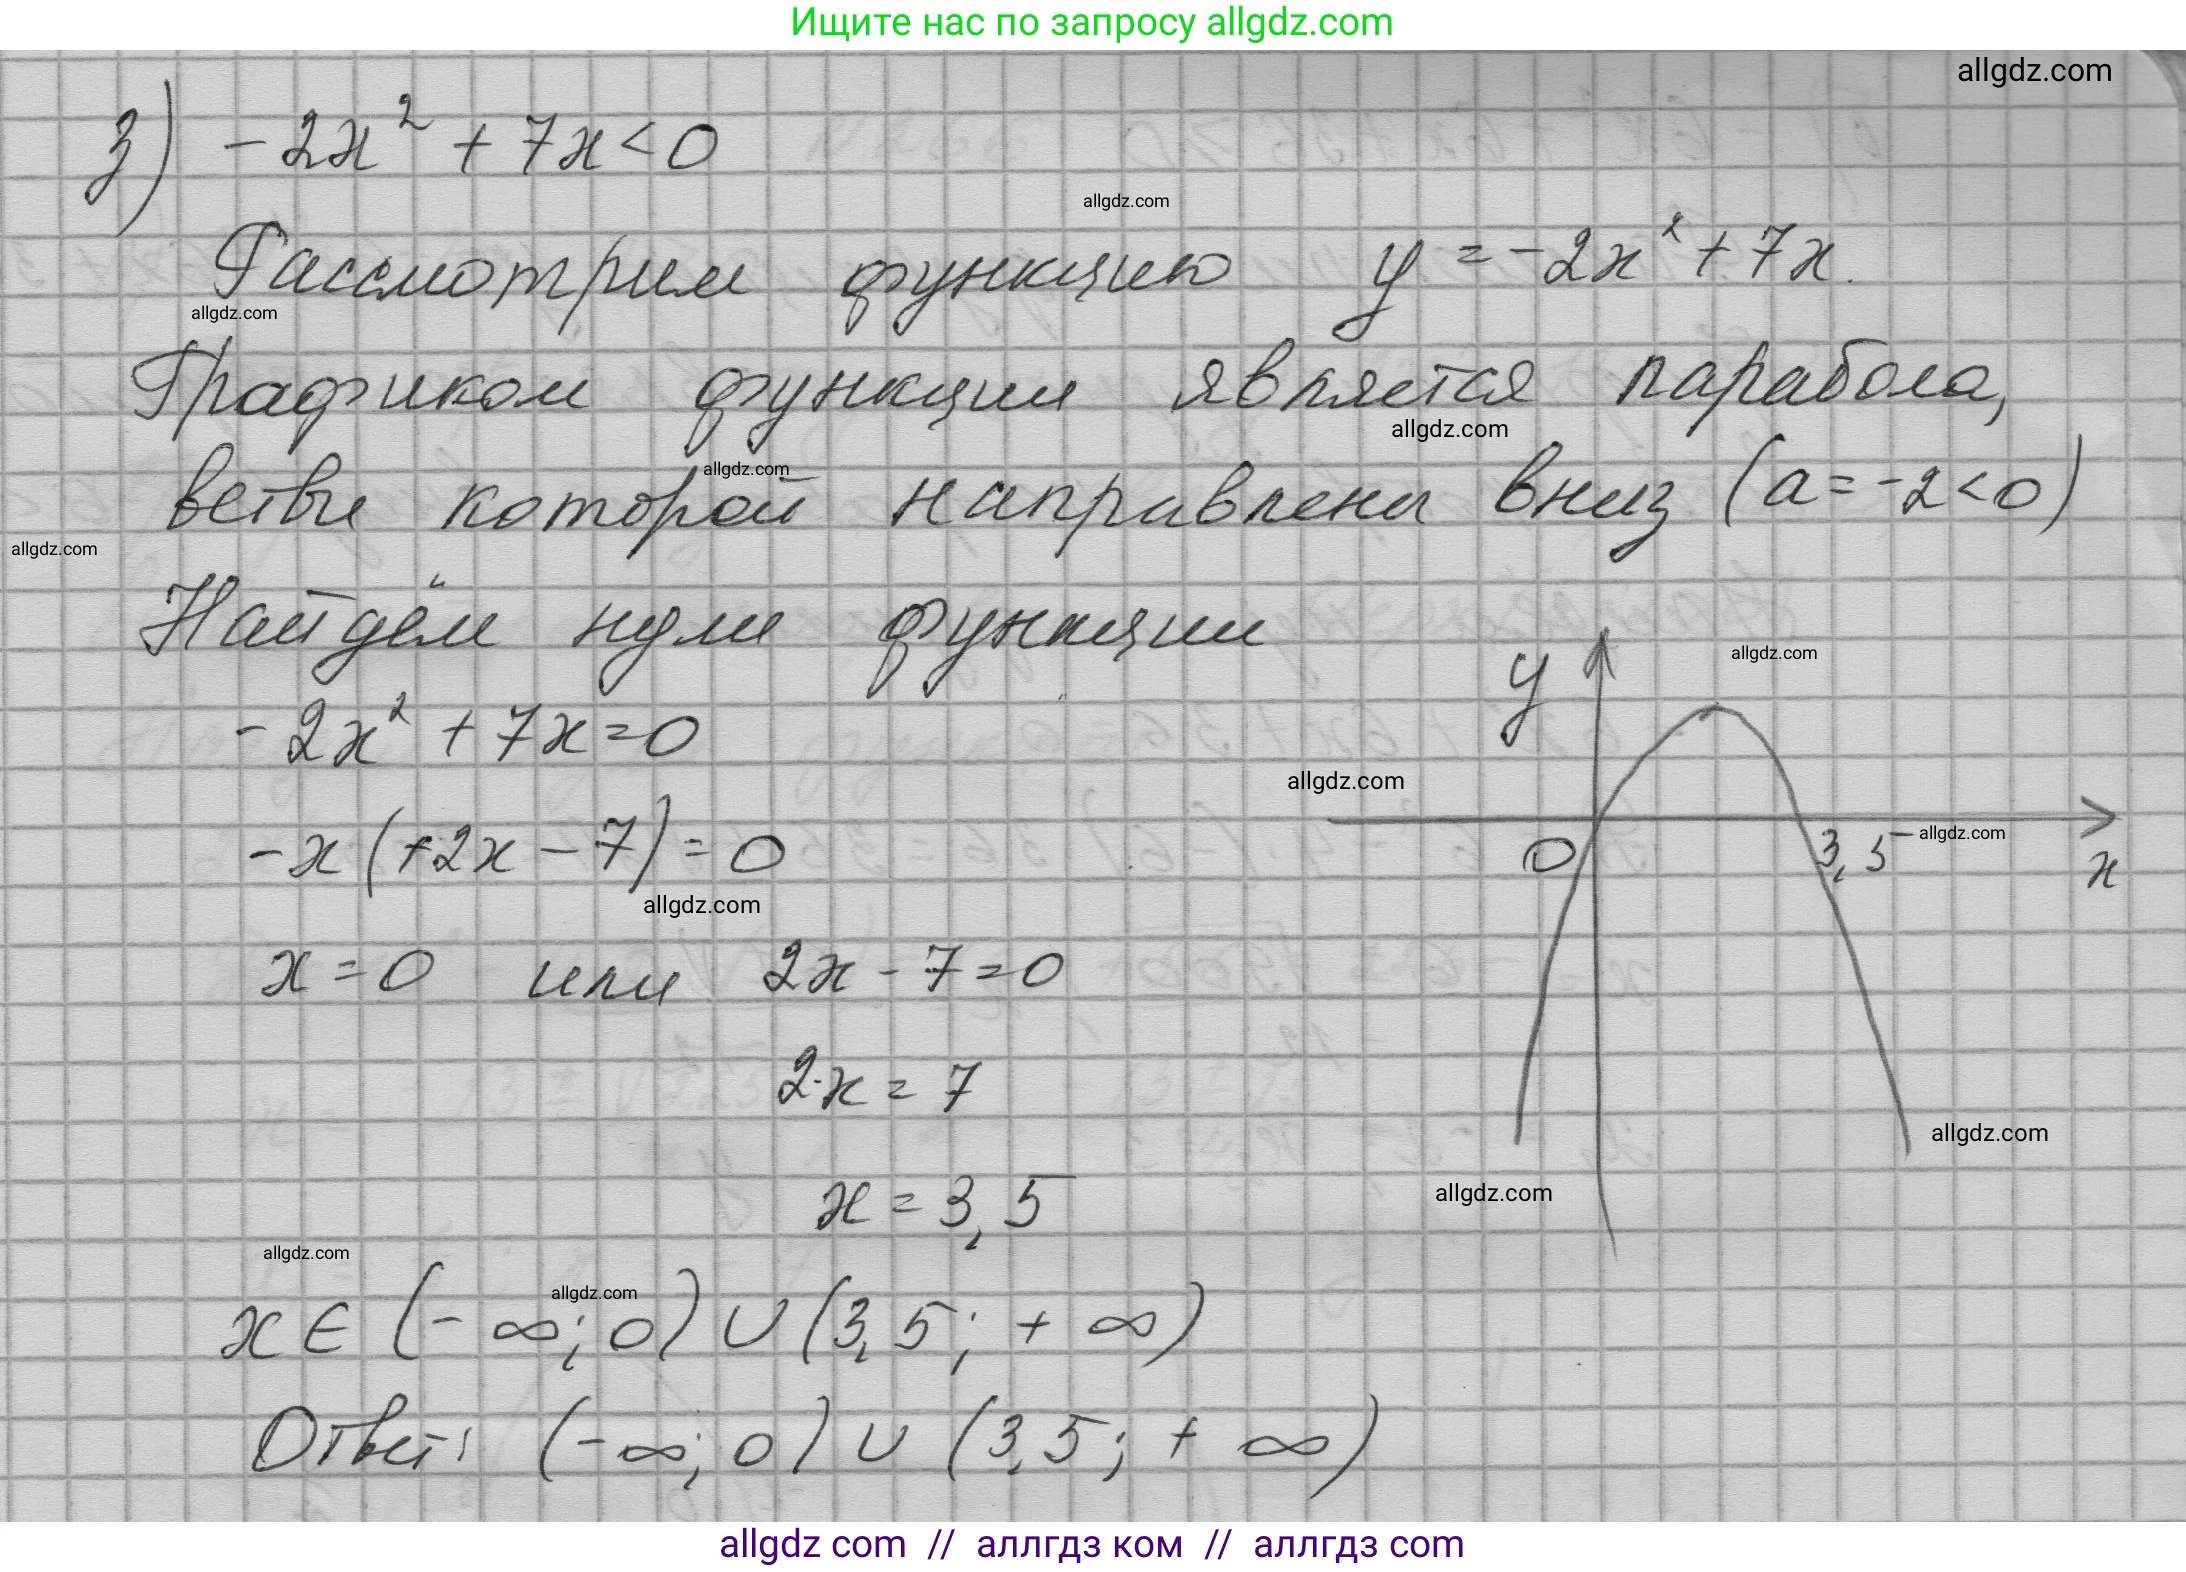 Ищите нас по запросу allgdz.com
allgdz.com
з) -2x² + 7x < 0
allgdz.com
Рассмотрим функцию y = -2x² + 7x.
allgdz.com
Графиком функции является парабола,
allgdz.com
allgdz.com
ветви которой направлены вниз (a = -2 < 0)
allgdz.com
Найдём нули функции
y
allgdz.com
-2x² + 7x = 0
allgdz.com
-x(+2x - 7) = 0
0
3,5
allgdz.com
x
allgdz.com
x = 0 или 2x - 7 = 0
2·x = 7
allgdz.com
allgdz.com
x = 3,5
allgdz.com
allgdz.com
x ∈ (-∞; 0) ∪ (3,5; +∞)
Ответ: (-∞; 0) ∪ (3,5; +∞)
allgdz com // аллгдз ком // аллгдз com